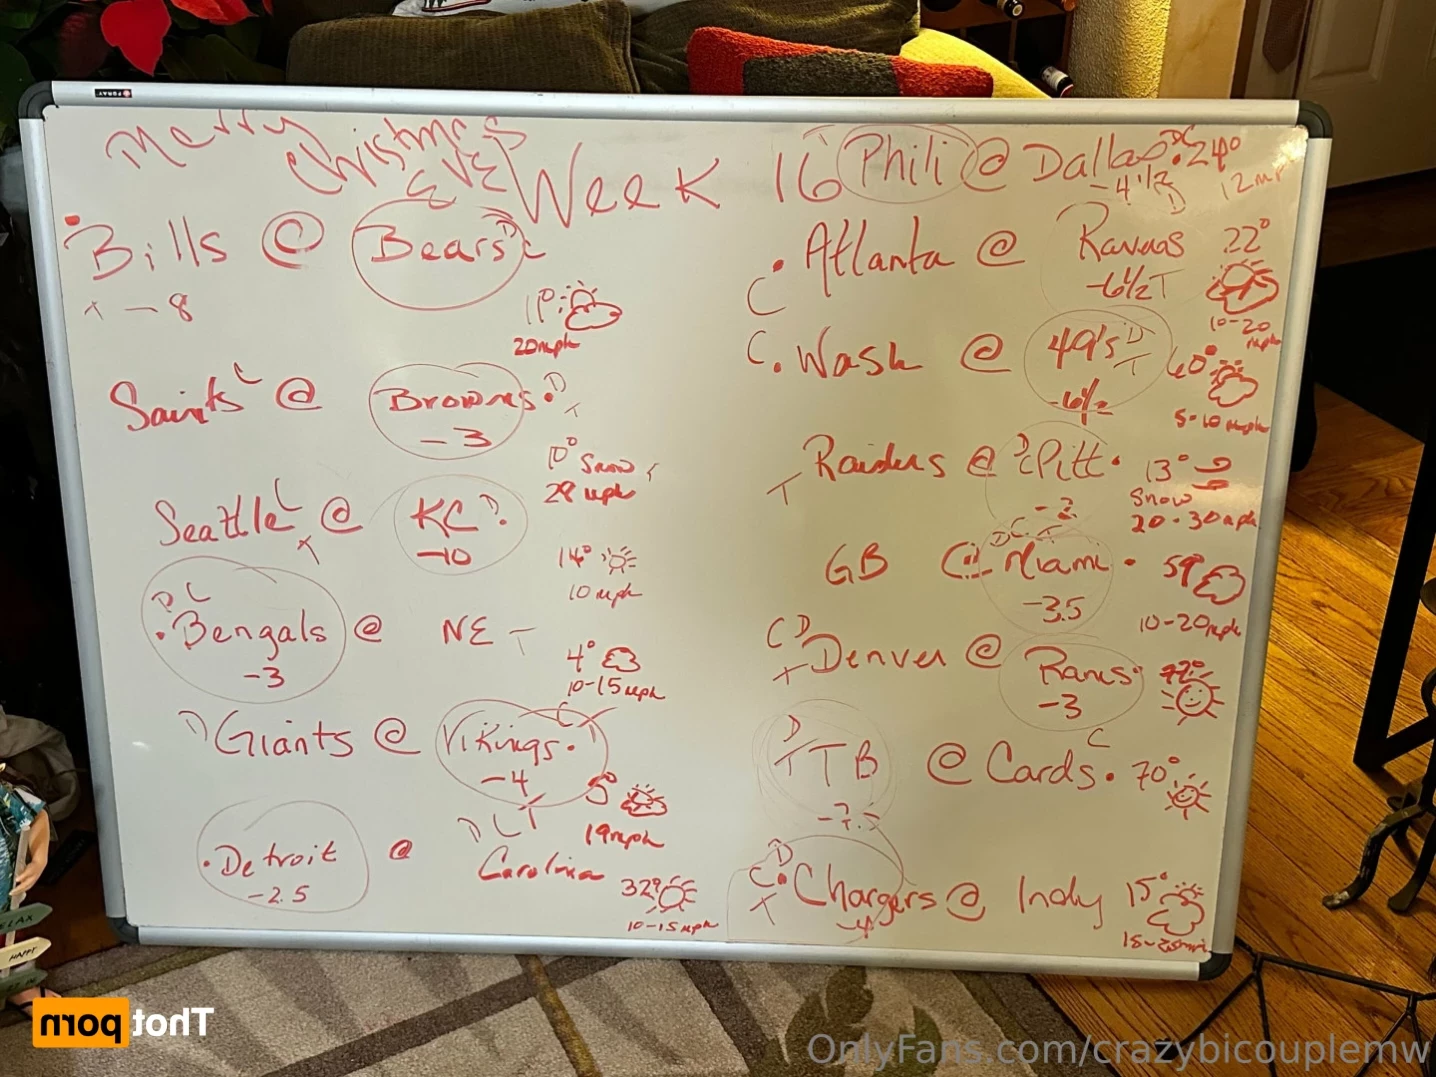 Merry
Christmas
EVE
Week 16
Bills @ Bears D C
T -8
1° 20mph
Saints C @ Browns D T
-3
10° Snow
28 mph
Seattle C @ KC D
T -10
14°
10 mph
D C
Bengals @ NE T
-3
4°
10-15 mph
D Giants @ Vikings
C
-4
5°
19mph
D C T
Detroit @ Carolina
-2.5
32°
10-15 mph
T Phili @ Dallas DC 24°
-4 1/2 D 12mp
Atlanta @ Ravens 22°
C -6 1/2 T
10-20 mph
C Wash @ 49's D T 60°
-6 1/2
5-10 mph
Raiders @ D C Pitt 13°
T -2 Snow
20-30mph
DC T
GB @ Miami 59°
-3.5
10-20mph
C D
T Denver @ Rams
-3
D
T TB @ Cards C 70°
D
C Chargers @ Indy 15°
T -4
FORAY
RELAX
HAPPY
Thot porn
OnlyFans.com/crazybicouplemw